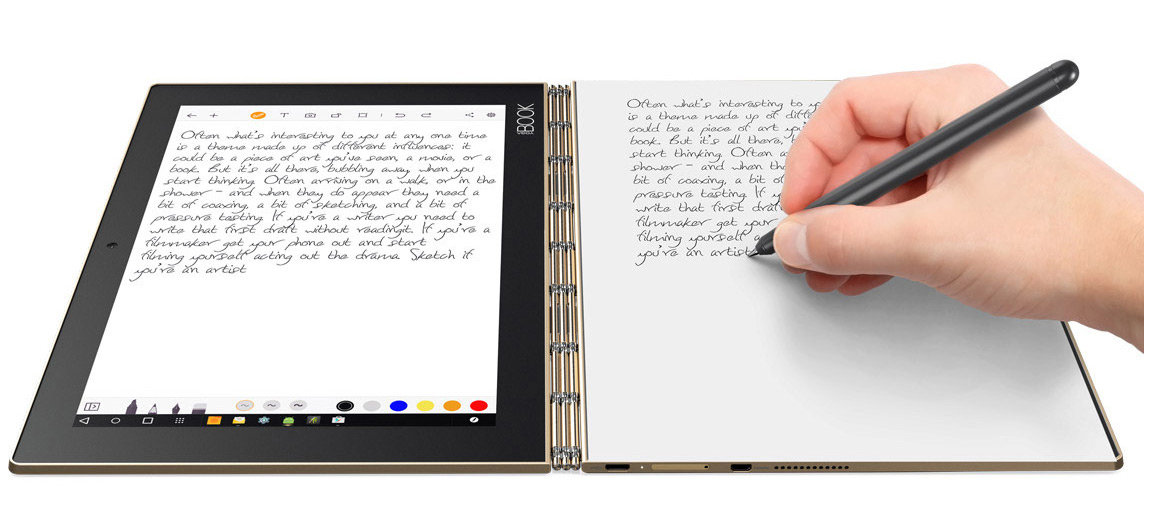 BOOK
Often what's interesting to you at any one time
is a theme made up of different influences: it
could be a piece of art you've seen, a movie, or a
book. But it's all there, bubbling away, when you
start thinking. Often arriving on a walk, or in the
shower – and when they do appear they need a
bit of coaxing, a bit of sketching, and a bit of
pressure testing. If you're a writer you need to
write that first draft without readingit. If you're a
filmmaker get your phone out and start
filming yourself acting out the drama. Sketch if
you're an artist
Often what's interesting to
is a theme made up of
could be a piece of art
book. But it's all there,
start thinking. Often
shower – and when
bit of coaxing, a bit of
pressure testing. If
write that first draft
filmmaker get your
filming yourself
you're an artist